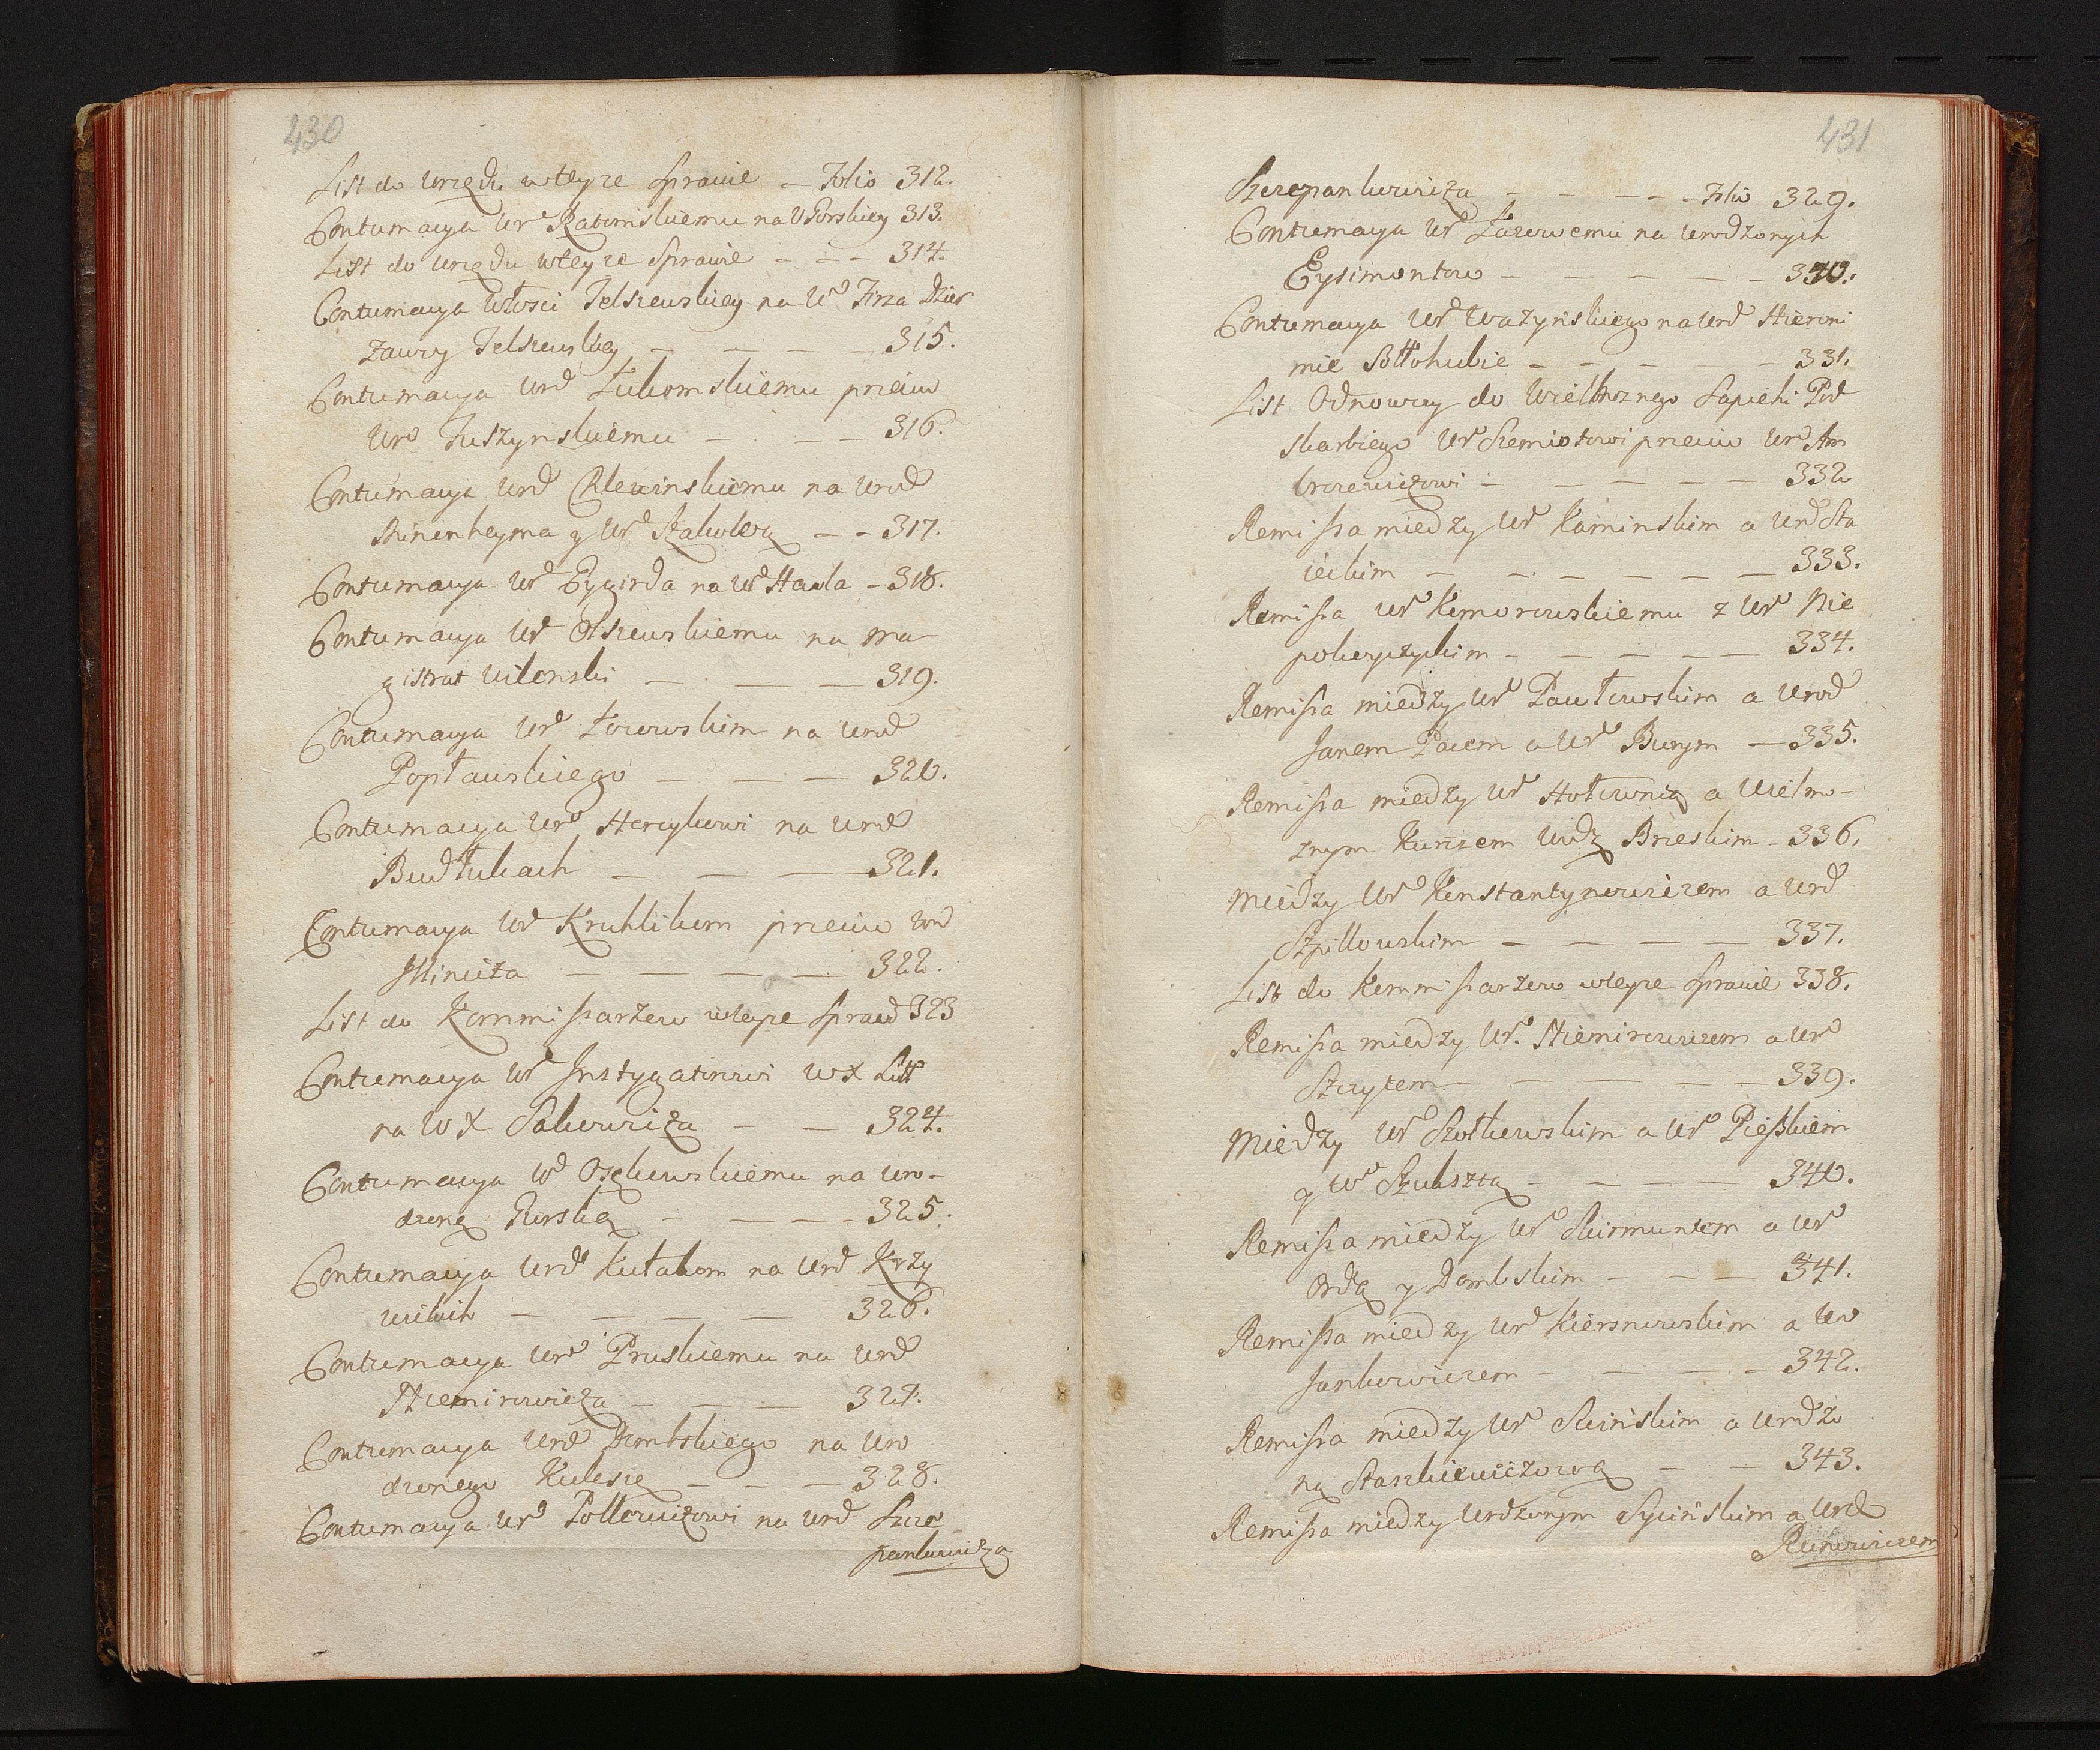 430
List do Urzędu wteyze Sprawie – Folio 312.
Contumacya Ur Ratomskiemu na U Gorskiey 313.
List do Urzędu wteyze Sprawie – – – 314.
Contumacya Włosci Telszewskiey na Ur Firza Dzier
zawcy Telszewskiey – – – – 315.
Contumacya Urod Łukomskiemu przeciw
Uro Juszynskiemu – – – 316.
Contumacya Urod Chlewinskiemu na Urod
Rinenheyma y Ur Szakolera – – 317.
Contumacya Ur Eygirda na Ur Hawla – 318.
Contumacya Ur Olszewskiemu na Ma–
gistrat Wilenski – – – 319.
Contumacya Ur Łozowskim na Urod
Popławskiego – – – 320.
Contumacya Uro Horcykowi na Urod
Budłukach – – – 321.
Contumacya Ur Kruhlikom przeciw Urod
Ilinicza – – – – 322.
List do Kommissarzow wteyze Spraw 323
Contumacya Ur Instygatorowi WX Litt
na WX Sakowicza – – 324.
Contumacya Ur Osękowskiemu na Uro–
dzoną Gorską – – – – 325.
Contumacya Urod Kułakom na Urod Krzy
wickich – – – – 326.
Contumacya Uro Pruskiemu na Urod
Niemirowicza – – – 327.
Contumacya Urod Dombskiego na Uro
dzonego Kuleszę – – – 328.
Contumacya Ur Pollowiczowi na Urod Szcze
pankowicza
431
Szczepankowicza – – – – Folio 329.
Contumacya Ur Łazowemu na Urodzonych
Eysimontow – – – – – 330.
Contumacya Ur Wazynskiego na Urod Hieroni
mie Sołłohubie – – – – – 331.
List Odnowczy do Wielmoznego Sapiehi Pod
skarbiego Ur Siemiotowi przeciw Uro Am
brozewiczowi – – – – – 332
Remissa miedzy Ur Kaminskim a Urod Sta
ieckim – – – – – – 333.
Remissa Ur Komorowskiemu z Uro Nie
pokoyczyckim – – – – – 334.
Remissa miedzy Ur Pawłowskim a Urod
Janem Pacem a Ur Burym – 335.
Remissa miedzy Ur Hołownią a Wielmo–
znym Kunizem Wodz Brzeskim – 336.
Miedzy Uro Konstantynowiczem a Urod
Szpilkowskim – – – – 337.
List do Kommissarzow wteyze Sprawie 338.
Remissa miedzy Ur. Niemirowiczem a Uro
Szczytem – – – – – 339.
Miedzy Ur Szołkowskim a Ur Piesskiem
y Ur Szukszta – – – – 340.
Remissa miedzy Ur Skirmuntem a Ur
Ordą y Dombskim – – – 341.
Remissa miedzy Uro Kiersnowskim a Uro
Jankowiczem – – – – 342.
Remissa miedzy Ur Skinskim a Urodzo
ną Staszkiewiczową – – 343.
Remissa miedzy Urodzonym Sycińskim a Urod
Runiewiczem